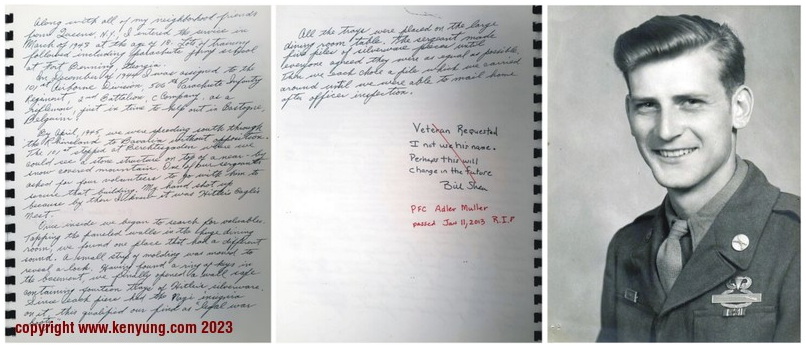 Along with all of my neighborhood friends
from Queens, N.Y., I entered the service in
March of 1943 at the age of 18. Lots of training
followed including parachute jump school
at Fort Benning, Georgia.
In December of 1944 I was assigned to the
101st Airborne Division, 506th Parachute Infantry
Regiment, 2nd Battalion, Company, as a
rifleman, just in time to help out in Bastogne,
Belgium.
By April, 1945, we were speeding south through
the Rhineland to Bavaria without opposition.
The 101st stopped at Berchtesgaden where we
could see a stone structure on top of a near-by
snow covered mountain. One of our sergeants
asked for four volunteers to go with him to
that building. My hand shot up
because by then we knew it was Hitler's Eagle's
Nest.
Once inside we began to search for valuables.
Tapping the paneled walls in the large dining
room, we found one place that had a different
sound. A small strip of molding was moved to
reveal a lock. Having found a ring of keys in
the basement, we finally opened a small safe
containing fourteen trays of Hitler's silverware.
Since each piece had the Nazi insignia
on it, this qualified our find as "legal war
All the trays were placed on the large
dining room table. The sergeant made
five piles of silverware pieces until
everyone agreed they were as equal as possible.
Then we each chose a pile which we carried
around until we were able to mail home
after officer inspection.
Veteran Requested
I not use his name.
Perhaps this will
change in the future
Bill Shea
PFC Adler Muller
passed Jan 11, 2013 R.I.P
copyright www.kenyung.com 2023